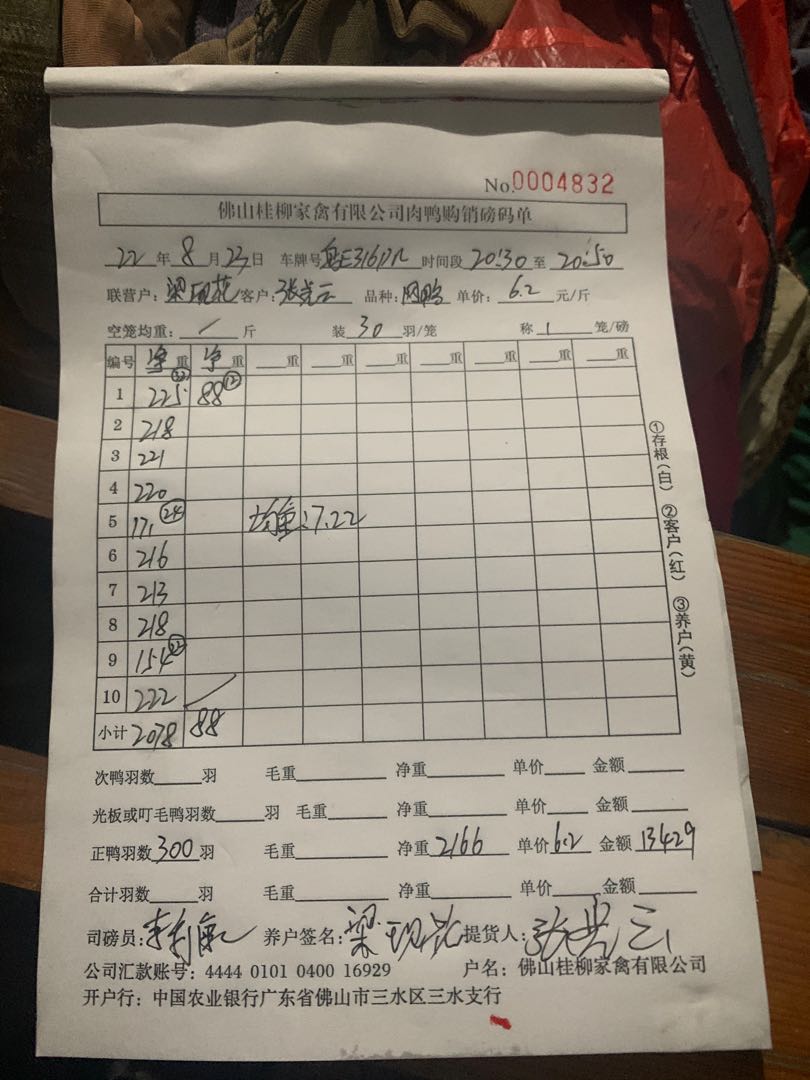 No.0004832
佛山桂柳家禽有限公司肉鸭购销磅码单
22 年 8 月 23 日 车牌号 E316 时间段 20:30 至 20:50
联营户: 梁现花 客户: 张 品种: 肉鸭 单价: 6.2 元/斤
空笼均重: / 斤 装 30 羽/笼 称 1 笼/磅
编号 净重 净重 重 重 重 重 重 重
1 225 88 ⑫
2 218
3 221
4 220
5 171 ㉔
6 216
7 213
8 218
9 154
10 222
均重:7.22
小计 2078 88
①存根(白) ②客户(红) ③养户(黄)
次鸭羽数 羽 毛重 净重 单价 金额
光板或叮毛鸭羽数 羽 毛重 净重 单价 金额
正鸭羽数 300 羽 毛重 净重 2166 单价 6.2 金额 13429
合计羽数 羽 毛重 净重 单价 金额
司磅员: 养户签名: 梁现花 提货人: 张
公司汇款账号: 4444 0101 0400 16929 户名: 佛山桂柳家禽有限公司
开户行: 中国农业银行广东省佛山市三水区三水支行